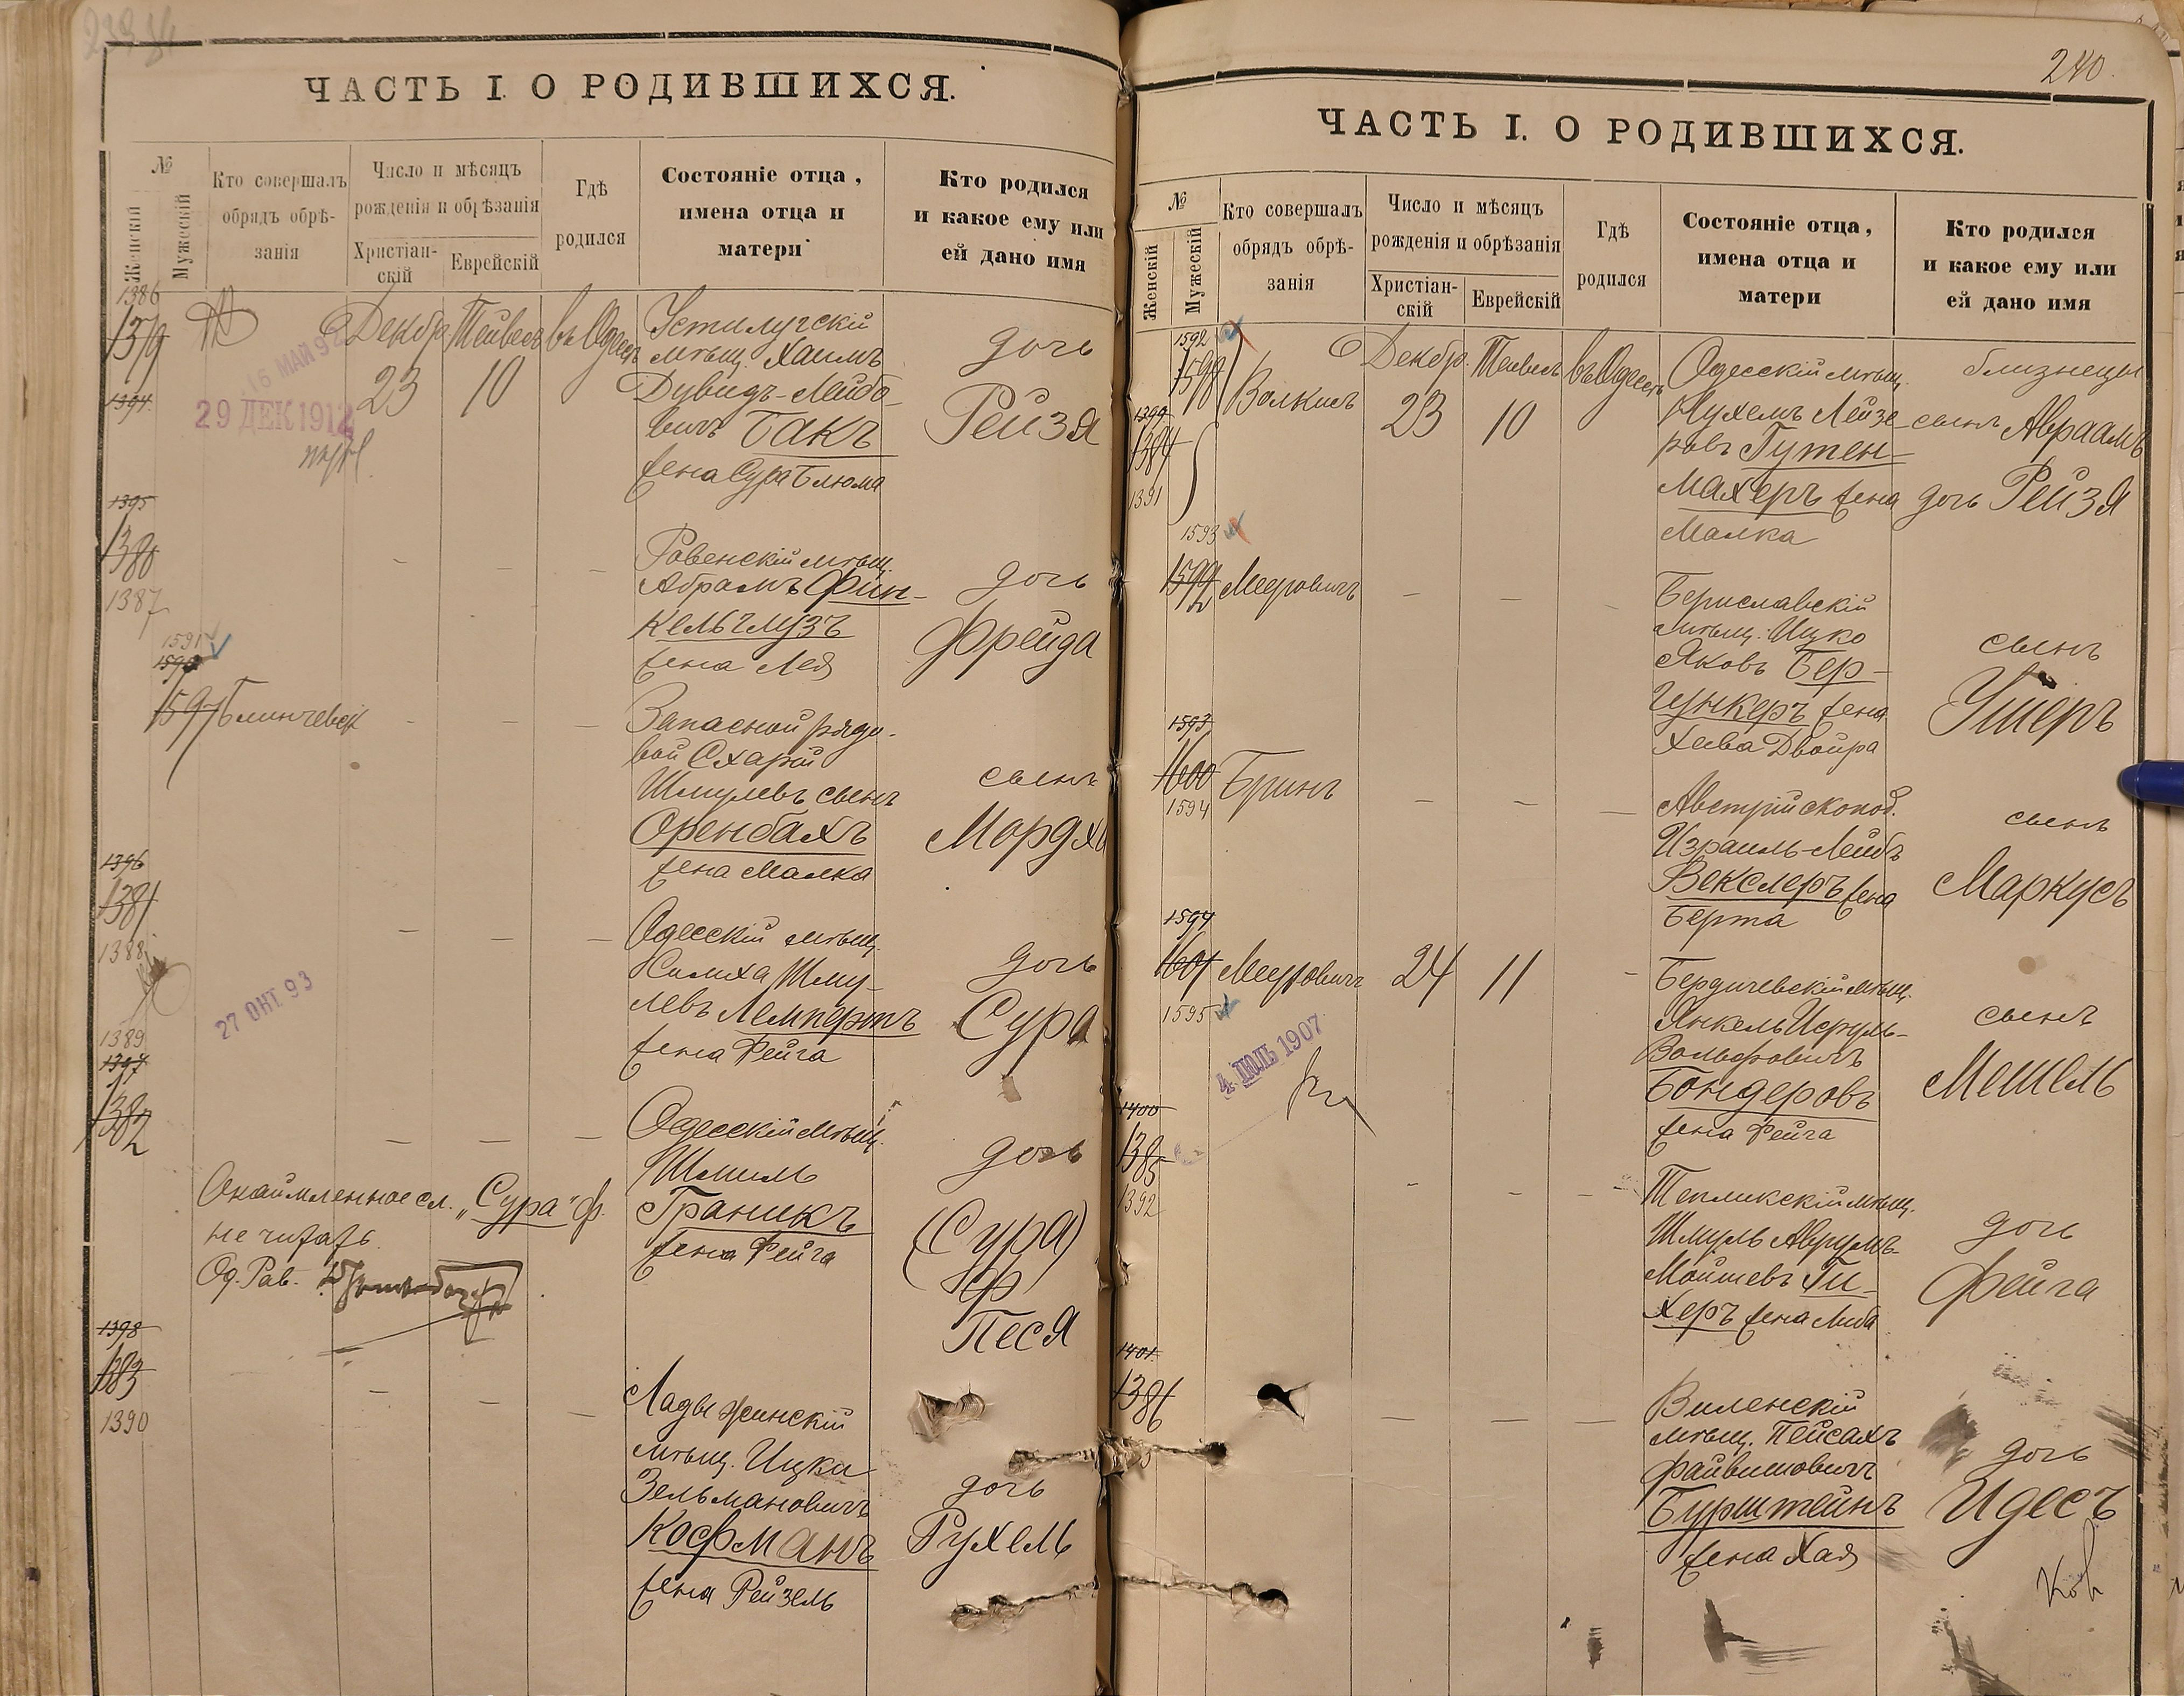 ЧАСТЬ I. О РОДИВШИХСЯ.
№
Женскій
Мужескій
Кто совершалъ
обрядъ обрѣ-
занія
Число и мѣсяцъ
рожденія и обрѣзанія
Христіан-
скій
Еврейскій
Гдѣ
родился
Состояніе отца,
имена отца и
матери
Кто родился
и какое ему или
ей дано имя
1386
1379
1394
16 МАЙ 9
29 ДЕК 1912
Декабр
23
Тейвесъ
10
въ Одессѣ
Устилугскій
мѣщ. Хаимъ
Дувидъ-Лейбо-
вичъ Бакъ
жена Сура Блюма
дочь
Рейзя
1395
1380
1387
Ровенскій мѣщ.
Абрамъ Фин-
кельглузъ
жена Лея
дочь
Фрейда
1591
1597
Блинчевск
Запасной рядо-
вой Схарій
Шмулевъ сынъ
Оренбахъ
жена Малка
сынъ
Мордхе
1396
1381
1388
27 ОКТ. 93
Одесскій мѣщ.
Шму-
левъ Лемпертъ
жена Фейга
дочь
Сура
1389
1397
1382
Одесскій мѣщ.
Шмиль
Граникъ
жена Фейга
дочь
(Сура)
Песя
сл. „Сура"
не читать
Од. Рав.
1398
1383
1390
Ладыжинскій
мѣщ. Ицка
Зельмановичъ
Кофманъ
жена Рейзель
дочь
Рухель
240.
ЧАСТЬ I. О РОДИВШИХСЯ.
№
Женскій
Мужескій
Кто совершалъ
обрядъ обрѣ-
занія
Число и мѣсяцъ
рожденія и обрѣзанія
Христіан-
скій
Еврейскій
Гдѣ
родился
Состояніе отца,
имена отца и
матери
Кто родился
и какое ему или
ей дано имя
1592
1598
1399
1384
1391
Волкисъ
Декабр.
23
Тейвесъ
10
въ Одессѣ
Одесскій мѣщ.
Нухемъ Лейзе-
ровъ Гутен-
махеръ жена
Малка
близнецы
сынъ Авраамъ
дочь Рейзя
1593
1599
Меуровичъ
Бериславскій
мѣщ. Ицко
Яковъ Бер-
гункеръ жена
Хава Двойра
сынъ
Ушеръ
1593
1600
1594
Бринъ
Австрійскопод.
Израиль-Лейбъ
Векслеръ жена
Берта
сынъ
Маркусъ
1594
1601
1595
Меуровичъ
24
11
4 ІЮЛЬ 1907
Бердичевскій мѣщ.
Янкель Исруль-
Вольфовичъ
Бондеровъ
жена Фейга
сынъ
Мешель
1400
1385
1392
Тепликскій мѣщ.
Шмуль Аврумъ-
Мойшевъ Ги-
херъ жена Либа
дочь
Фейга
1401
1386
Виленскій
мѣщ. Пейсахъ
Файвишовичъ
Бурштейнъ
жена Хая
дочь
Идесъ